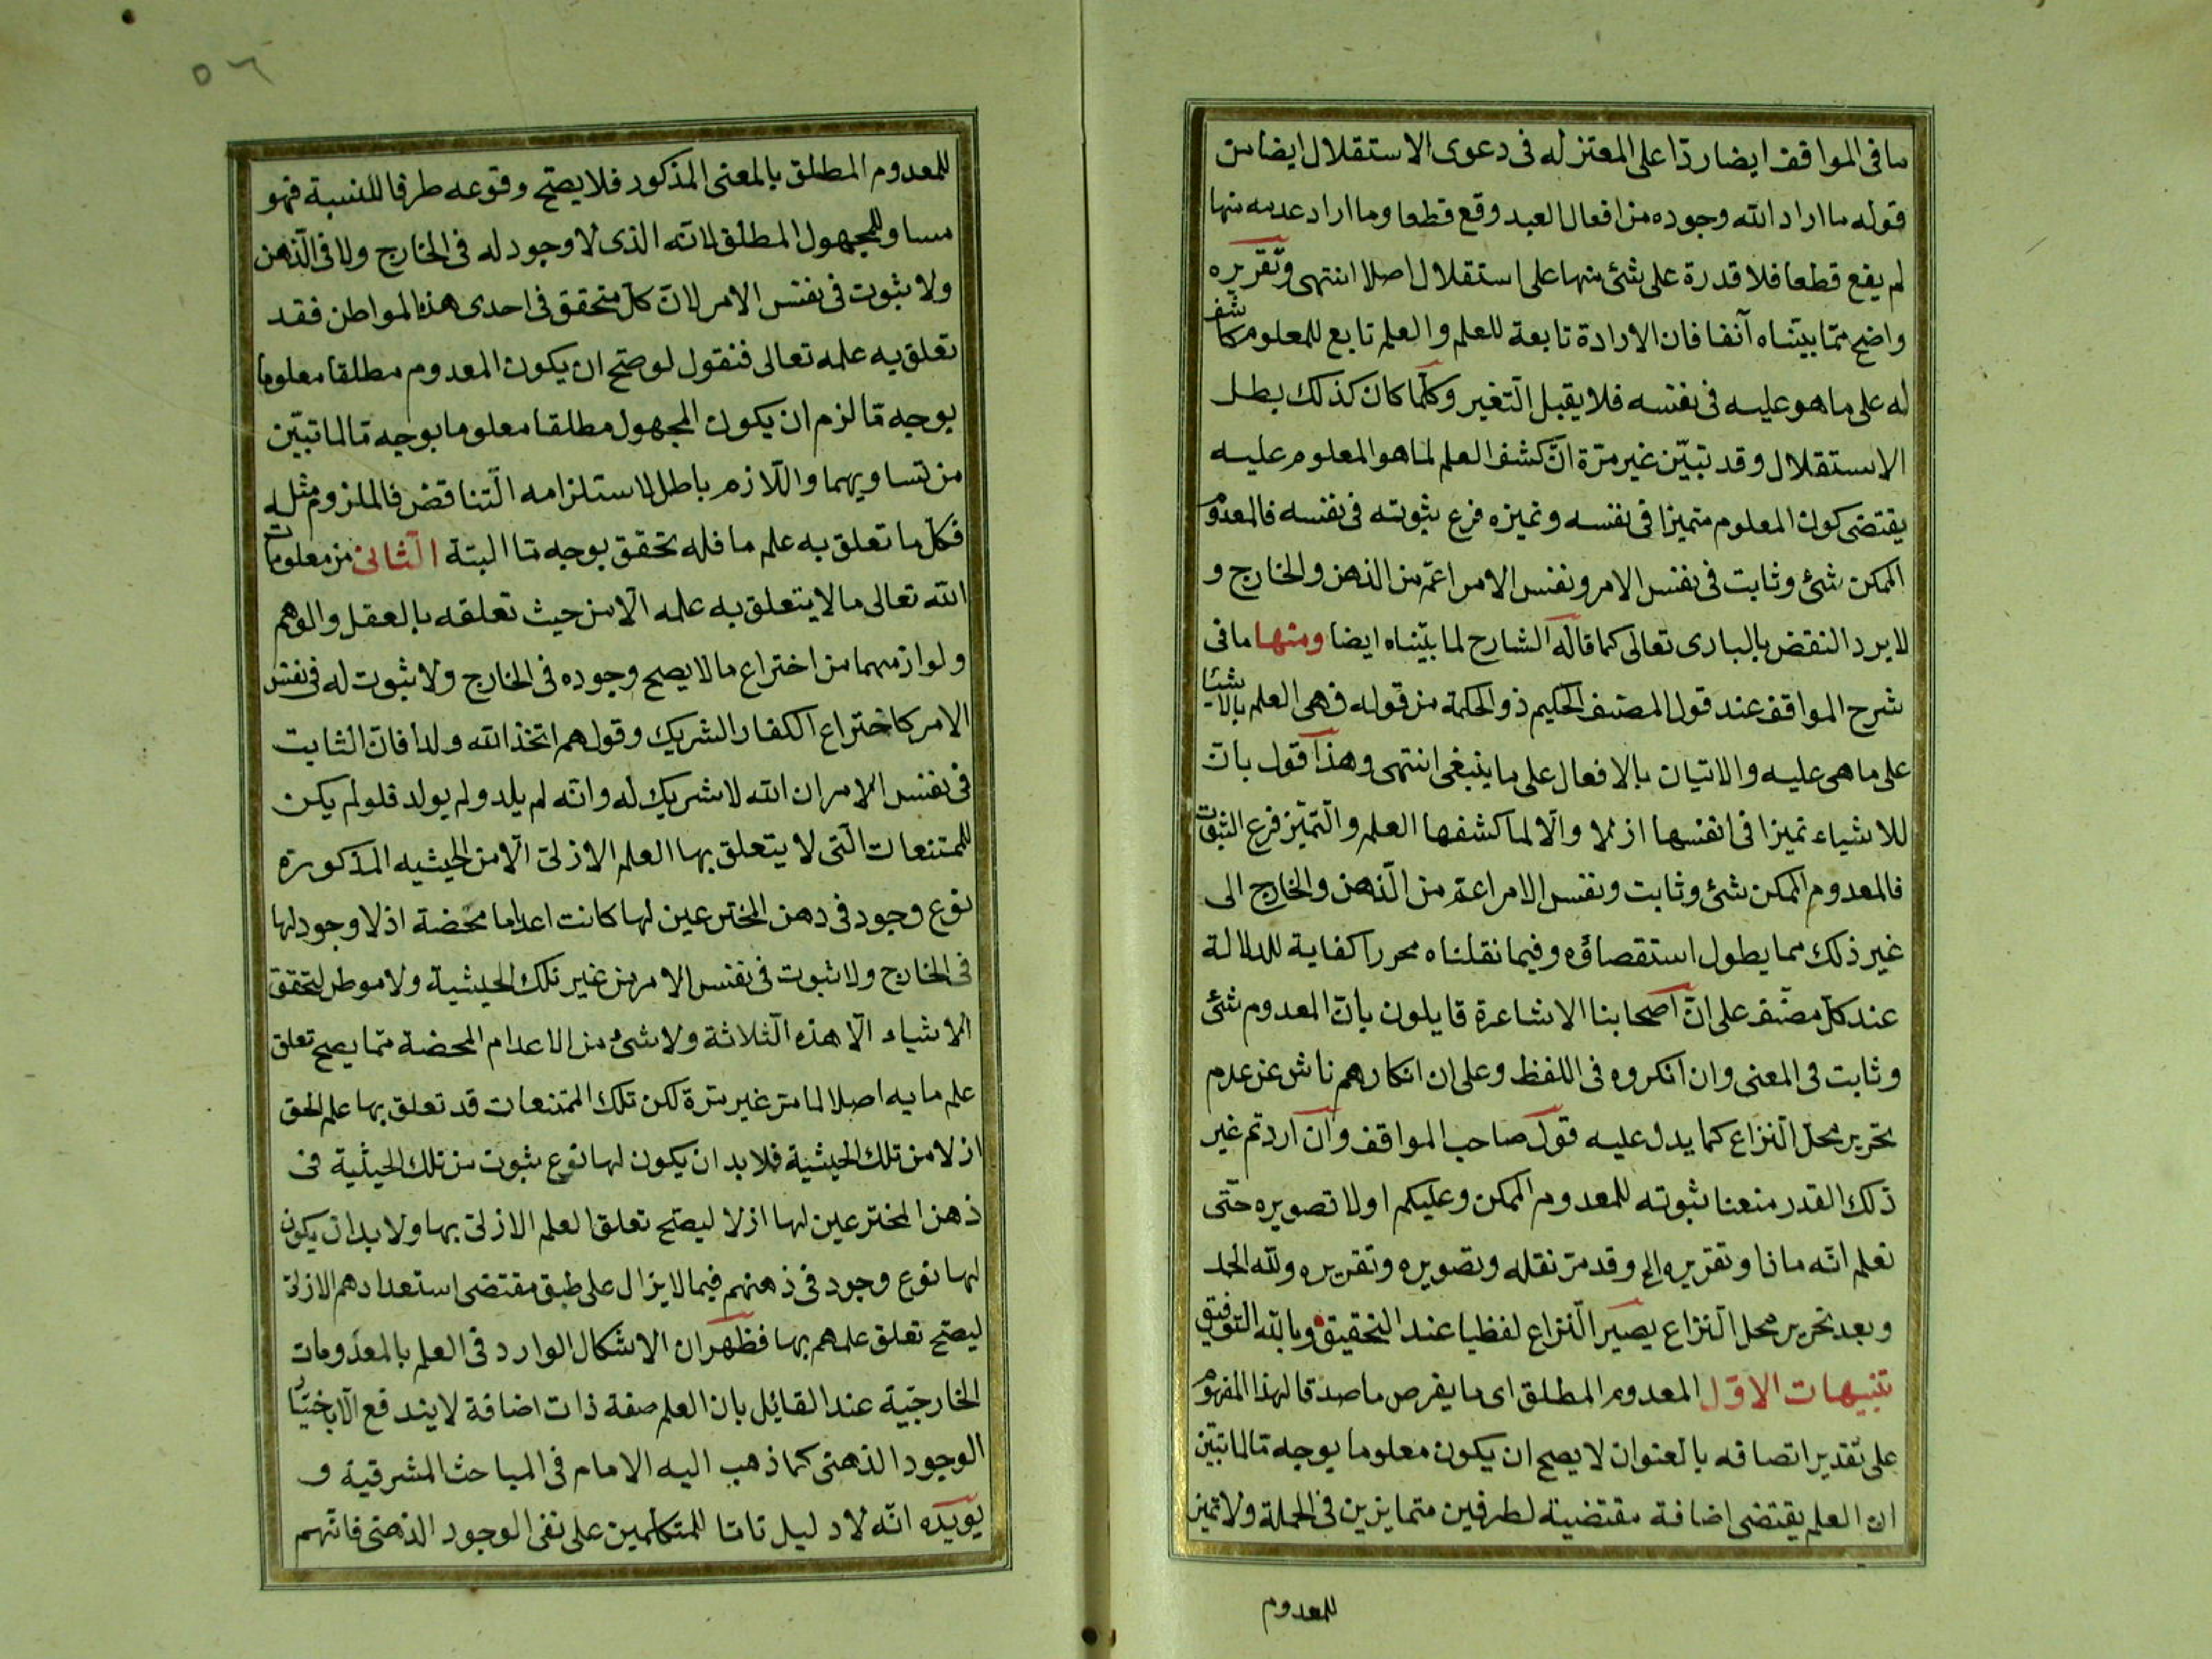 ما فى المواقف ايضا ردّا على المعتزله فى دعوى الاستقلال ايضا من
قوله ما اراد الله وجوده من افعال العبد وقع قطعا وما اراد عدمه منها
لم يقع قطعا فلا قدرة على شئ منها على استقلال اصلا انتهى وتقريره
واضح ممّا بيّنّاه آنفا فان الارادة تابعة للعلم والعلم تابع للمعلوم كاشف
له على ما هو عليه فى نفسه فلا يقبل التّغير وكلّما كان كذلك بطل
الاستقلال وقد تبيّن غير مرّة انّ كشف العلم لما هو المعلوم عليه
يقتضى كون المعلوم متميزا فى نفسه وتميزه فرع ثبوته فى نفسه فالمعدوم
الممكن شئ وثابت فى نفس الامر ونفس الامر اعمّ من الذهن والخارج و
لا يرد النقض بالبارى تعالى كما قاله الشارح لما بيّناه ايضا ومنها ما فى
شرح المواقف عند قول المصنف الحكيم ذو الحكمة من قوله فهى العلم بالاشيا
على ما هى عليه والاتيان بالافعال على ما ينبغى انتهى وهذا قول بانّ
للاشياء تميزا فى انفسها ازلا والّا لما كشفها العلم والتّميّز فرع الثبوت
فالمعدوم الممكن شئ وثابت ونفس الامر اعمّ من الذّهن والخارج الى
غير ذلك مما يطول استقصاؤه وفيما نقلناه محررا كفاية للدلالة
عند كلّ مصنّف على انّ اصحابنا الاشاعرة قايلون بانّ المعدوم شئ
وثابت فى المعنى وان انكروه فى اللفظ وعلى ان انكارهم ناش عن عدم
تحرير محل النزاع كما يدل عليه قول صاحب المواقف وان اردتم غير
ذلك القدر منعنا ثبوته للمعدوم الممكن وعليكم اولا تصويره حتّى
نعلم انّه ماذا وتقريره الخ وقد مرّ نقله وتصويره وتقريره ولله الحمد
وبعد تحرير محل النزاع يصير النّزاع لفظيا عند التحقيق وبالله التوفيق
تنبيهات الاوّل المعدوم المطلق اى ما يفرض ما صدقا لهذا المفهوم
على تقدير اتصافه بالعنوان لا يصح ان يكون معلوما بوجه مّا لما تبيّن
ان العلم يقتضى اضافة مقتضية لطرفين متمايزين فى الجملة ولا تميز
للمعدوم
٥٦
للمعدوم المطلق بالمعنى المذكور فلا يصّح وقوعه طرفا للنسبة فهو
مساو للمجهول المطلق لانّه الذى لا وجود له فى الخارج ولا فى الذّهن
ولا ثبوت فى نفس الامر لانّ كلّ متحقق فى احدى هذه المواطن فقد
تعلق به علمه تعالى فنقول لو صحّ ان يكون المعدوم مطلقا معلوما
بوجه مّا لزم ان يكون المجهول مطلقا معلوما بوجه مّا لما تبيّن
من تساويهما واللّازم باطل لاستلزامه التّناقض فالملزوم مثله
فكلّ ما تعلق به علم ما فله تحقق بوجه مّا البتة الثّانى من معلومات
الله تعالى ما لا يتعلق به علمه الّا من حيث تعلقه بالعقل والوهم
ولوازمهما من اختراع ما لا يصح وجوده فى الخارج ولا ثبوت له فى نفس
الامر كاختراع الكفار الشريك وقولهم اتخذ الله ولدا فانّ الثابت
فى نفس الامر ان الله لا شريك له وانّه لم يلد ولم يولد فلو لم يكن
للممتنعات الّتى لا يتعلق بها العلم الازلىّ الّا من الحيثيه المذكورة
نوع وجود فى ذهن المخترعين لها كانت اعداما محضة اذ لا وجود لها
فى الخارج ولا ثبوت فى نفس الامر من غير تلك الحيثية ولا موطن لتحقق
الاشياء الّا هذه الثّلاثة ولا شئ من الاعدام المحضة ممّا يصح تعلق
علم ما به اصلا لما مرّ غير مرّة لكن تلك الممتنعات قد تعلق بها علم الحق
ازلا من تلك الحيثية فلا بد ان يكون لها نوع ثبوت من تلك الحيثية فى
ذهن المخترعين لها ازلا ليصّح تعلق العلم الازلىّ بها ولا بد ان يكون
لها نوع وجود فى ذهنهم فيما لا يزال على طبق مقتضى استعدادهم الازلىّ
ليصّح تعلق علمهم بها فظهر ان الاشكال الوارد فى العلم بالمعدومات
الخارجّية عند القائل بان العلم صفة ذات اضافة لا يندفع الّا باختيار
الوجود الذهنى كما ذهب اليه الامام فى المباحث المشرقية و
يويّده انّه لا دليل تامّا للمتكلمين على نفى الوجود الذهنى فانّهم